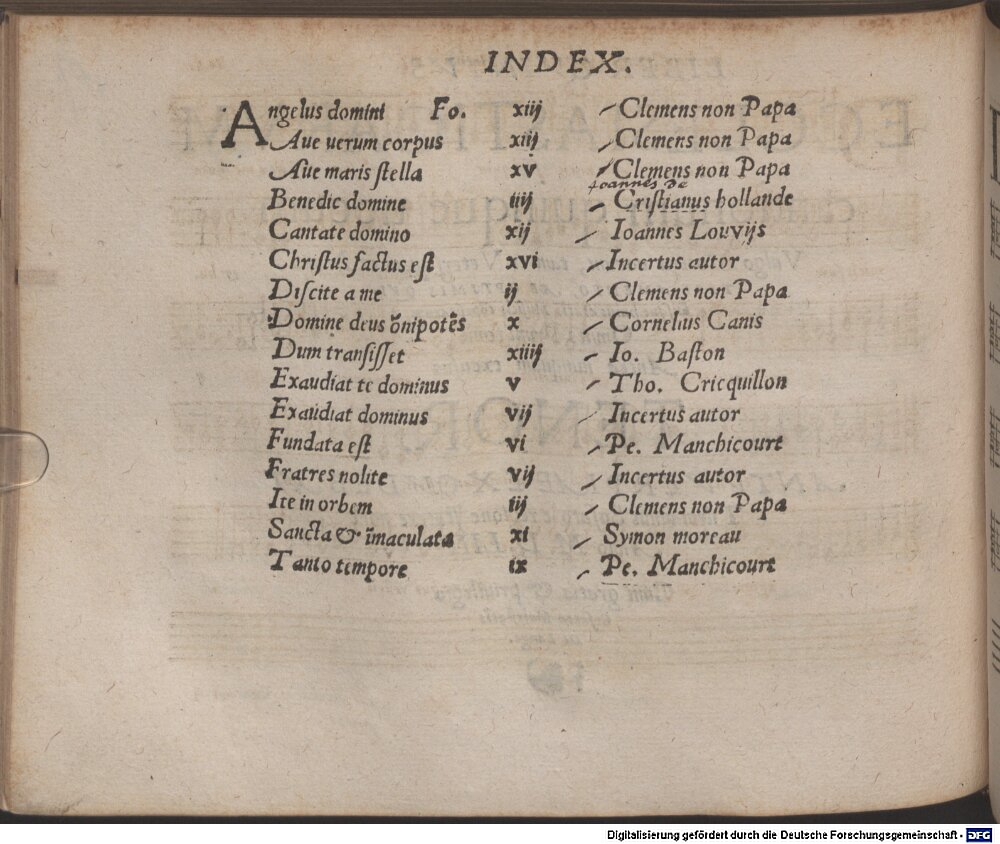 INDEX.
Angelus domini Fo. xiij Clemens non Papa
Aue uerum corpus xiij Clemens non Papa
Aue maris ſtella xv Clemens non Papa
Joannes de
Benedic domine iiij Criſtianus hollande
Cantate domino xij Ioannes Louvijs
Chriſtus factus eſt xvi Incertus autor
Diſcite a me ij Clemens non Papa
Domine deus õnipotẽs x Cornelius Canis
Dum tranſiſſet xiiij Io. Baſton
Exaudiat te dominus v Tho. Cricquillon
Exaudiat dominus vij Incertus autor
Fundata eſt vi Pe. Manchicourt
Fratres nolite vij Incertus autor
Ite in orbem iij Clemens non Papa
Sancta & ĩmaculata xi Symon moreau
Tanto tempore ix Pe. Manchicourt
Digitalisierung gefördert durch die Deutsche Forschungsgemeinschaft - DFG